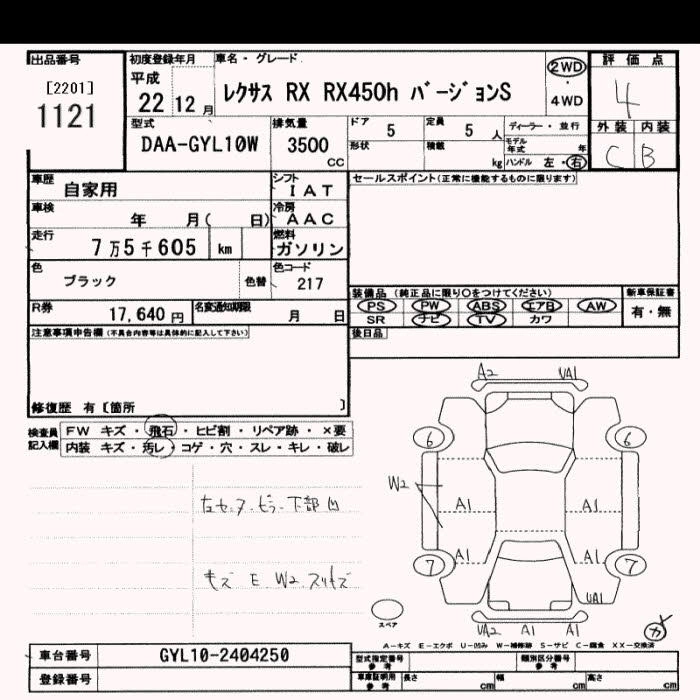 出品番号
[2201]
1121
初度登録年月
平成
22 12 月
車名・グレード
レクサス RX RX450h バージョンS
2WD
・
4WD
評価点
4
外装 内装
C B
型式
DAA-GYL10W
排気量
3500
cc
ドア 5
定員 5 人
形状
積載 kg
ディーラー・並行
モデル年式 年
ハンドル 左・右
車歴 自家用
シフト IAT
セールスポイント(正常に機能するものに限ります)
車検 年 月( 日)
冷房 AAC
走行 7万5千605 km
燃料 ガソリン
色 ブラック 色替
色コード 217
装備品 (純正品に限り○をつけてください)
新車保証書
PS PW ABS エアB AW
有・無
SR ナビ TV カワ
R券 17,640 円
名変通知期限 月 日
後日品
注意事項申告欄 (不具合内容等は具体的に記入して下さい)
修復歴 有〔箇所 〕
検査員記入欄
FW キズ・飛石・ヒビ割・リペア跡・×要
内装 キズ・汚レ・コゲ・穴・スレ・キレ・破レ
A2 UA1
6 6
W2
A1 A1
A1 A1
7 7
UA1
UA2 A1 A1
スペア
キズ E W2 スリキズ
A－キズ E－エクボ U－凹み W－補修跡 S－サビ C－腐食 XX－交換済
車台番号 GYL10-2404250
登録番号
型式指定番号 参考
類別区分番号 参考
車庫証明用 参考
長さ cm 幅 cm 高さ cm